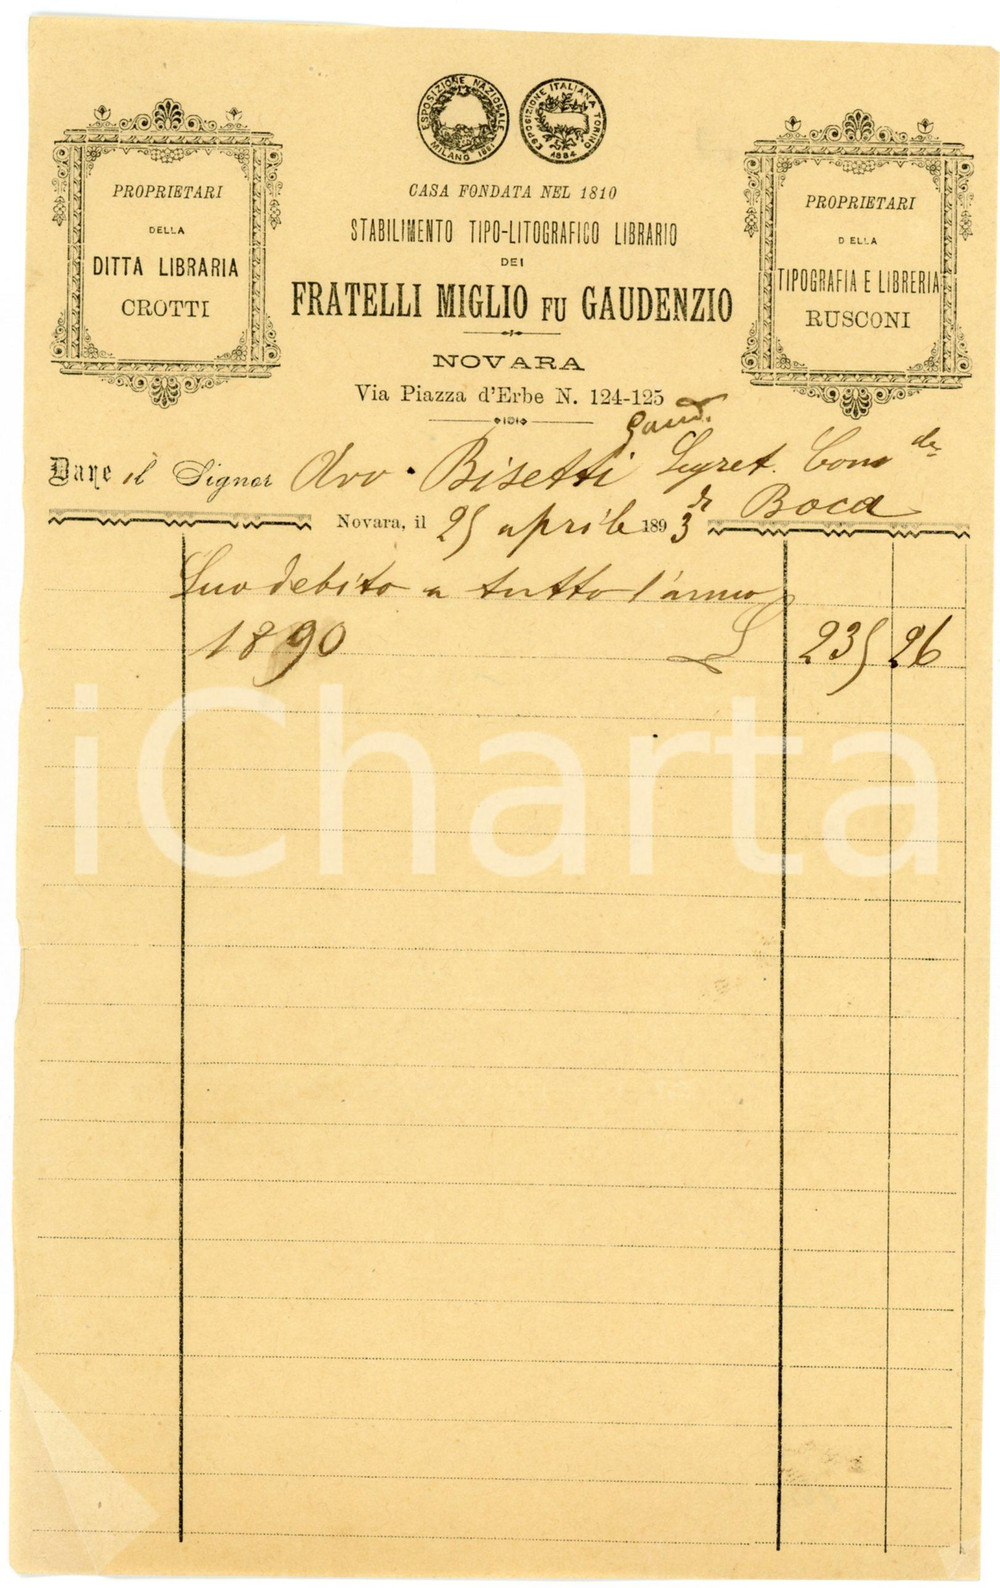 ESPOSIZIONE NAZIONALE MILANO 1881
ESPOSIZIONE ITALIANA TORINO 1884
PROPRIETARI
DELLA
DITTA LIBRARIA
CROTTI
CASA FONDATA NEL 1810
STABILIMENTO TIPO-LITOGRAFICO LIBRARIO
DEI
FRATELLI MIGLIO FU GAUDENZIO
NOVARA
Via Piazza d'Erbe N. 124-125
PROPRIETARI
DELLA
TIPOGRAFIA E LIBRERIA
RUSCONI
Gaud.
Dare il Signor Avv. Bisetti Segret. Com le
di Boca
Novara, il 25 aprile 1893
Suo debito a tutto l'anno
1890 L 235 26
iCharta